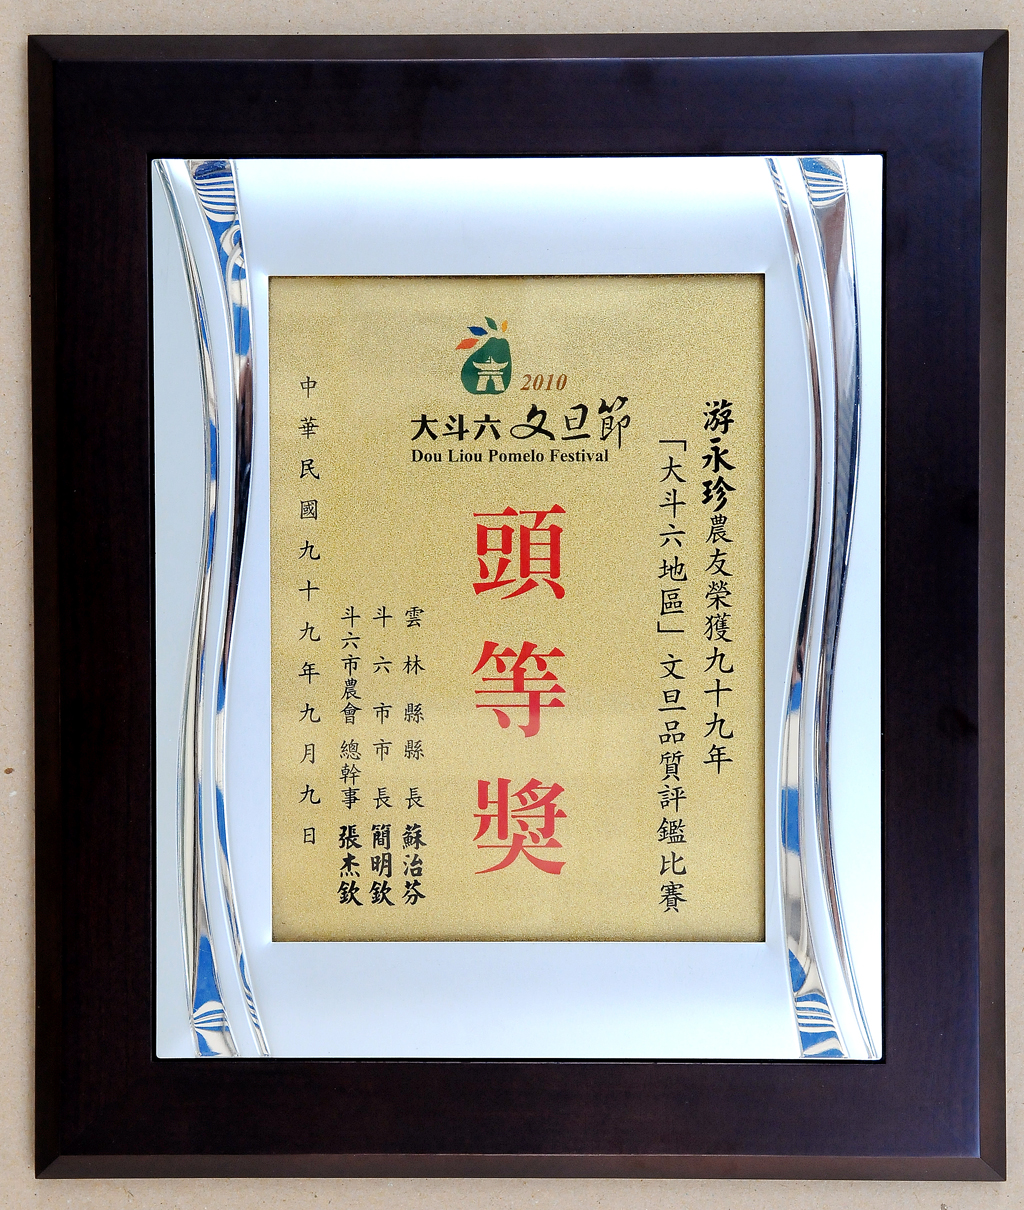 2010
大斗六文旦節
Dou Liou Pomelo Festival
游永珍農友榮獲九十九年
「大斗六地區」文旦品質評鑑比賽
頭等獎
雲林縣縣長 蘇治芬
斗六市市長 簡明欽
斗六市農會 總幹事 張杰欽
中華民國九十九年九月九日